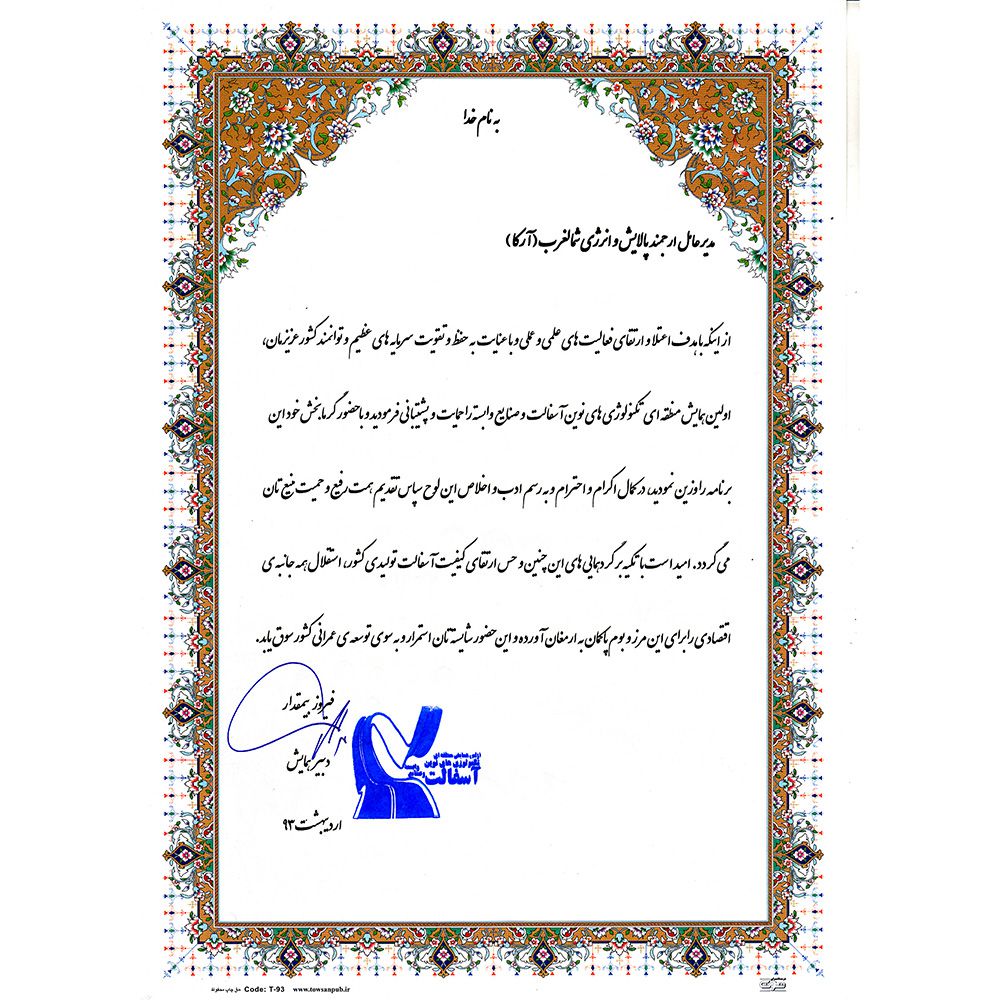 به نام خدا
مدیرعامل ارجمند پالایش و انرژی شمالغرب (آرکا)
از اینکه با هدف اعتلا و ارتقای فعالیت های علمی و عملی و با عنایت به حفظ و تقویت سرمایه های عظیم و توانمند کشور عزیزمان،
اولین همایش منطقه ای تکنولوژی های نوین آسفالت و صنایع وابسته را حمایت و پشتیبانی فرمودید و با حضور گرمابخش خود این
برنامه را وزین نمودید، در کمال اکرام و احترام و به رسم ادب و اخلاص این لوح سپاس تقدیم همت رفیع و حمیت منیع تان
می گردد. امید است با تکیه بر گردهمایی های این چنین و حس ارتقای کیفیت آسفالت تولیدی کشور، استقلال همه جانبه ی
اقتصادی را برای این مرز و بوم پاکمان به ارمغان آورده و این حضور شایسته تان استمرار و به سوی توسعه ی عمرانی کشور سوق یابد.
فیروز بیمقدار
دبیر همایش
اردیبهشت ۹۳
اولین همایش منطقه ای
تکنولوژی های نوین
آسفالت و صنایع وابسته
حق چاپ محفوظ Code: T-93 www.towsanpub.ir